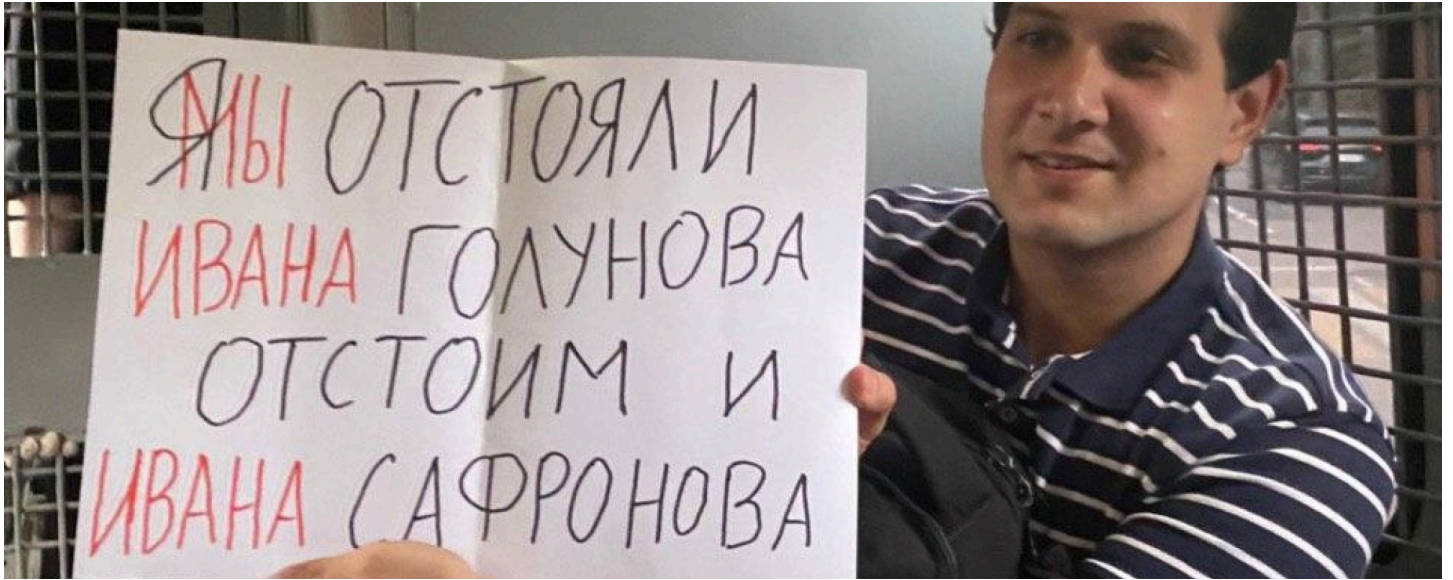 ЯМЫ ОТСТОЯЛИ
ИВАНА ГОЛУНОВА
ОТСТОИМ И
ИВАНА САФРОНОВА